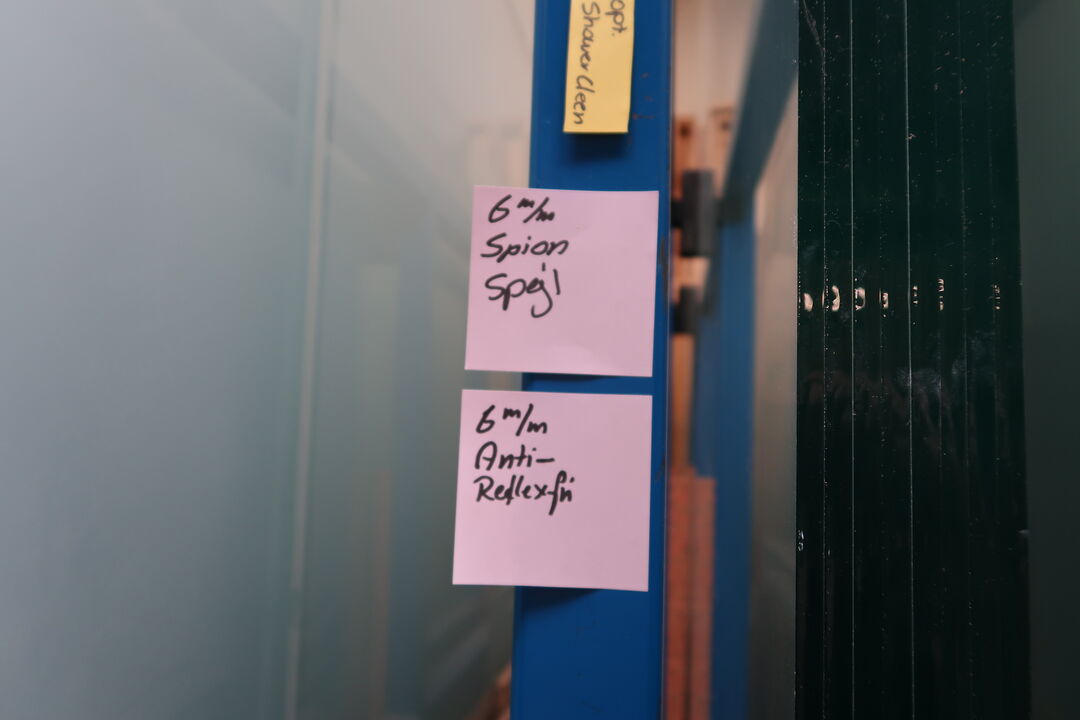 opt.
Shower Cleen
6 m/m
Spion
Spejl
6 m/m
Anti-
Reflex-fri